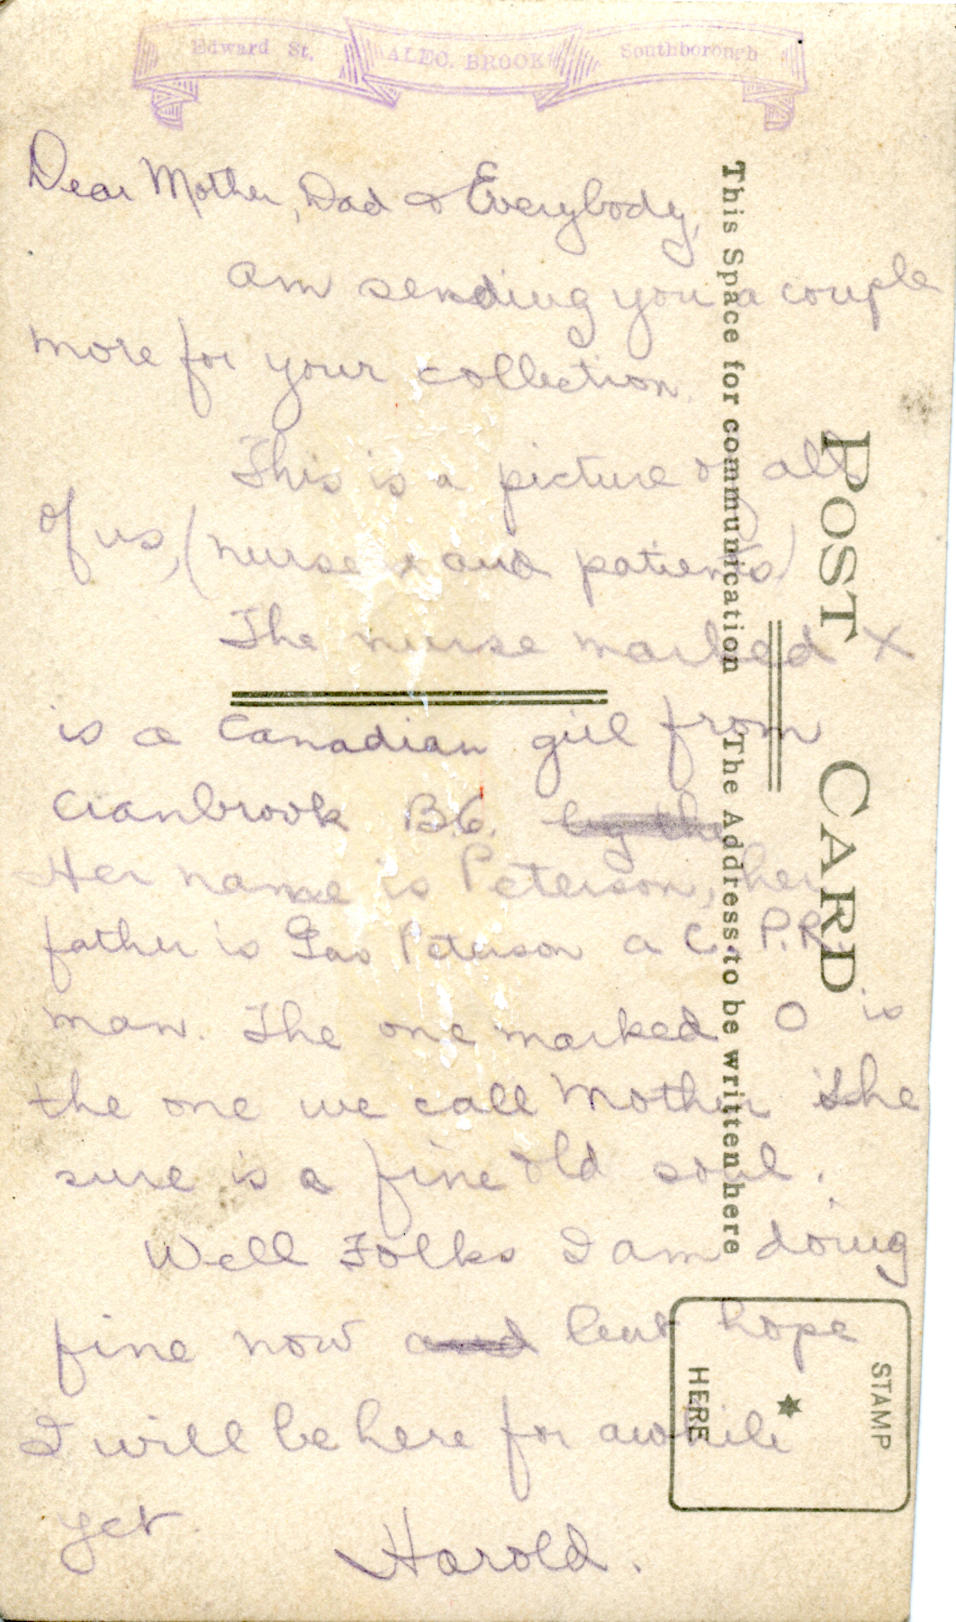 Edward St. ALEC. BROOK Southborough
Dear Mother, Dad & Everybody,
am sending you a couple
more for your collection.
This is a picture of all
of us, (nurses and patients)
The nurse marked X
is a Canadian girl from
Cranbrook B.C. by the
Her name is Peterson, her
father is Peterson a C.P.R.
man. The one marked O is
the one we call Mother She
sure is a fine old soul.
Well Folks I am doing
fine now and but hope
I will be here for awhile
yet
Harold.
POST CARD
This Space for communication The Address to be written here
STAMP
HERE